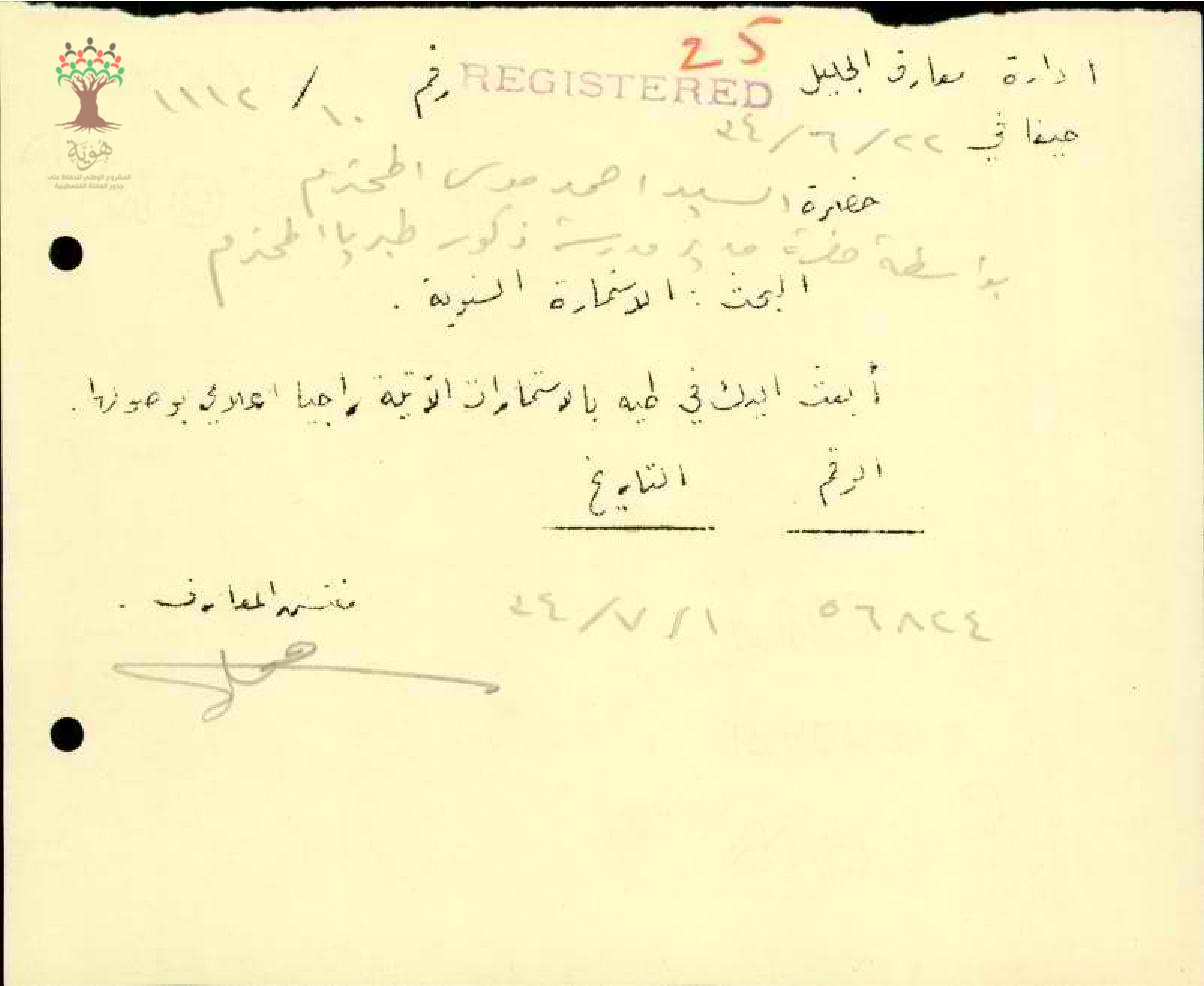 25
REGISTERED
ادارة معارف الجليل رقم ١٠ / ١١١٢
حيفا في ٢٢/٦/٣٤
حضرة السيد احمد موسى المحترم
بواسطة حضرة مدير مدرسة ذكور طبريا المحترم
البحث : الاستمارة السنوية .
أبعث اليك في طيه بالاستمارات الآتية راجيا اعلامي بوصولها .
الرقم التاريخ
٥٦٨٢٤ ١/٧/٣٤
مفتش المعارف .
هوية
المشروع الوطني للحفاظ على
جذور العائلة الفلسطينية